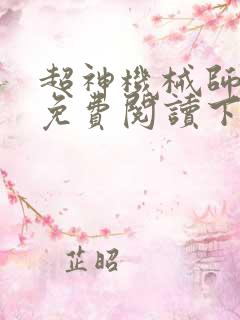 超神機械師
免費閱讀下
芷昭